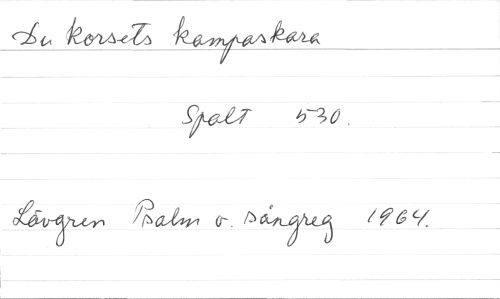 Du korsets kampaskara
Spalt 530.
Lövgren Psalm o. sångreg 1964.